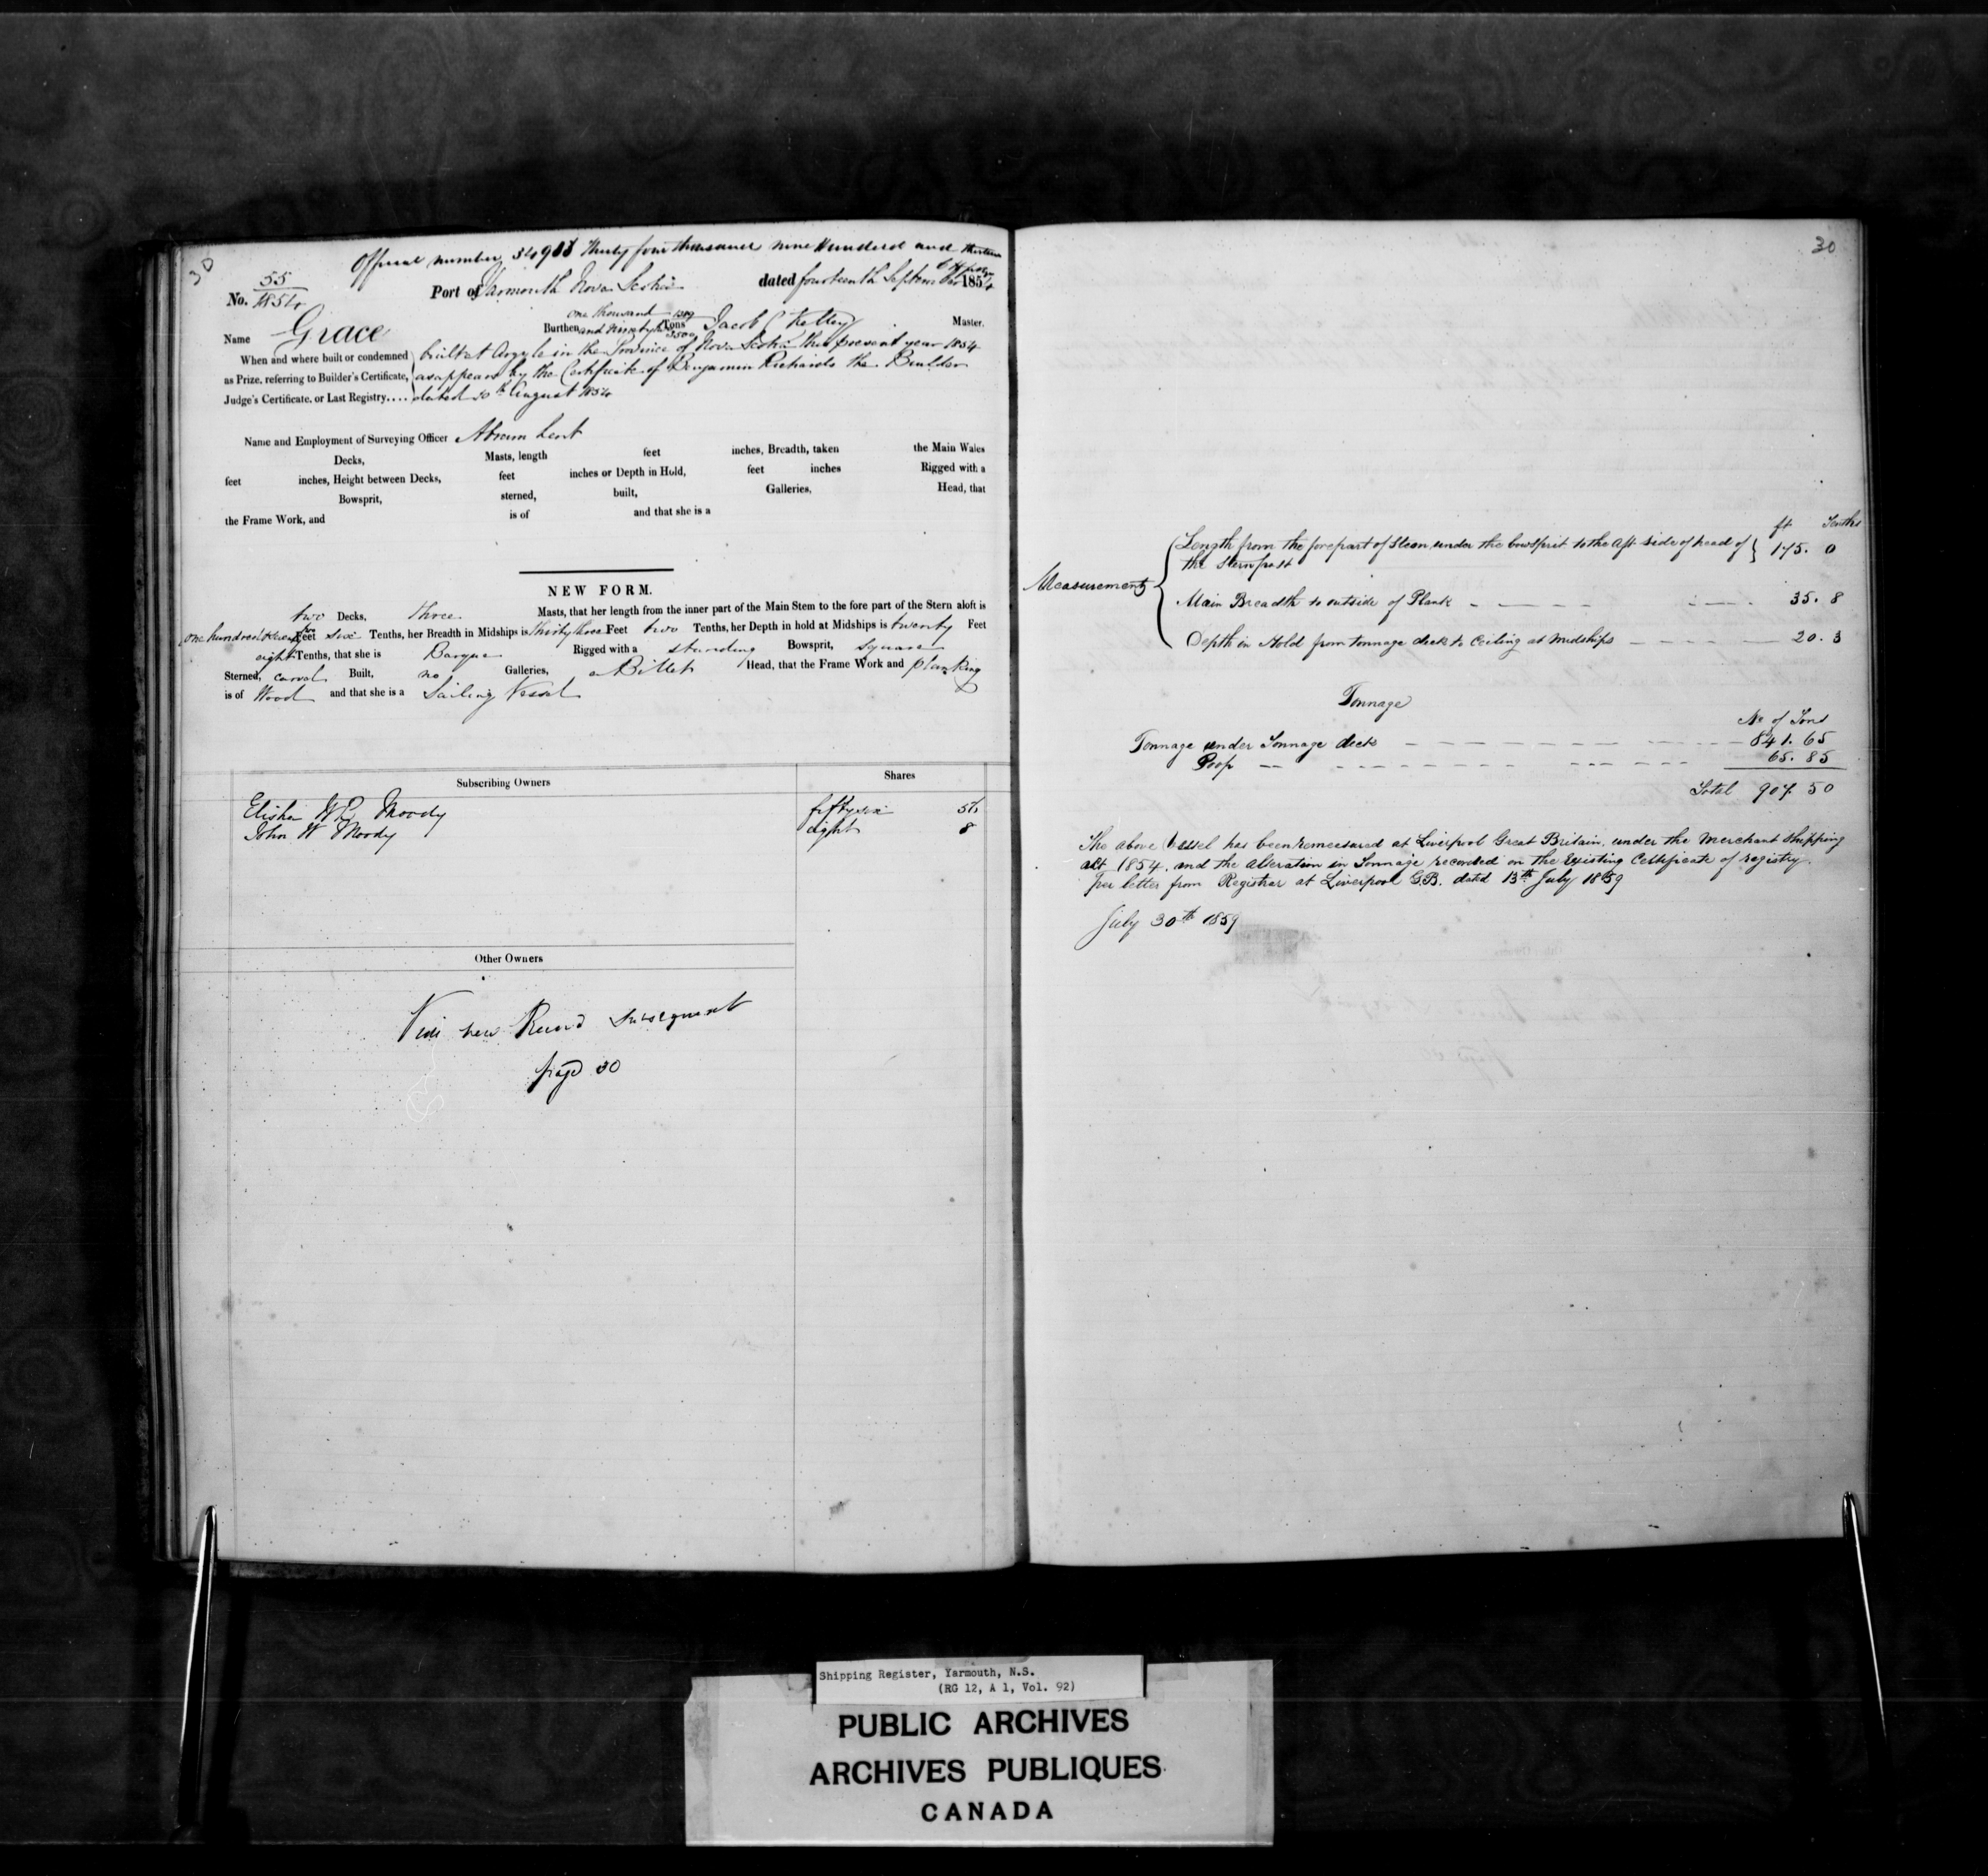 30
Official number 34,913 Thirty four thousand nine hundred and thirteen
No. 55/1854 Port of Yarmouth Nova Scotia dated fourteenth September 1854
Name Grace Burthen one thousand and Tons Jacob C Kelley Master.
When and where built or condemned built at Argyle in the Province of Nova Scotia this present year 1854
as Prize, referring to Builder's Certificate, as appears by the Certificate of Benjamin Richards the Builder
Judge's Certificate, or Last Registry.... dated August 1854
Name and Employment of Surveying Officer Abram Lent
Decks, Masts, length feet inches, Breadth, taken the Main Wales
feet inches, Height between Decks, feet inches or Depth in Hold, feet inches Rigged with a
Bowsprit, sterned, built, Galleries, Head, that
the Frame Work, and is of and that she is a
NEW FORM.
two Decks, three Masts, that her length from the inner part of the Main Stem to the fore part of the Stern aloft is
one hundred Feet six Tenths, her Breadth in Midships is thirty three Feet two Tenths, her Depth in hold at Midships is twenty Feet
eight Tenths, that she is Barque Rigged with a standing Bowsprit, square
Sterned, carvel Built, no Galleries, a Billet Head, that the Frame Work and planking
is of Wood and that she is a Sailing Vessel
Subscribing Owners Shares
Elisha W B Moody fifty six 56
John W Moody eight 8
Other Owners
Vide new Record subsequent
page 30
30
ft Tenths
Measurements Length from the forepart of Stem under the bowsprit to the aft side of head of
the sternpost 175. 0
Main Breadth to outside of Plank 35. 8
Depth in Hold from tonnage deck to Ceiling at Midships 20. 3
Tonnage
No of Tons
Tonnage under Tonnage deck 841. 65
Poop 65. 85
Total 907. 50
The above Vessel has been remeasured at Liverpool Great Britain, under the Merchant Shipping
act 1854, and the alteration in Tonnage recorded on the Existing Certificate of registry.
per letter from Registrar at Liverpool G.B. dated 13th July 1859
July 30th 1859
Shipping Register, Yarmouth, N.S.
(RG 12, A 1, Vol. 92)
PUBLIC ARCHIVES
ARCHIVES PUBLIQUES
CANADA